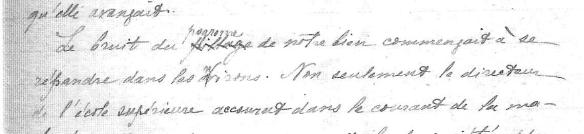 qu'elle avançait.
Le bruit du pogrome de notre bien commençait à se
répandre dans les environs. Non seulement le directeur
de l'école supérieure accourut dans le courant de la ma-